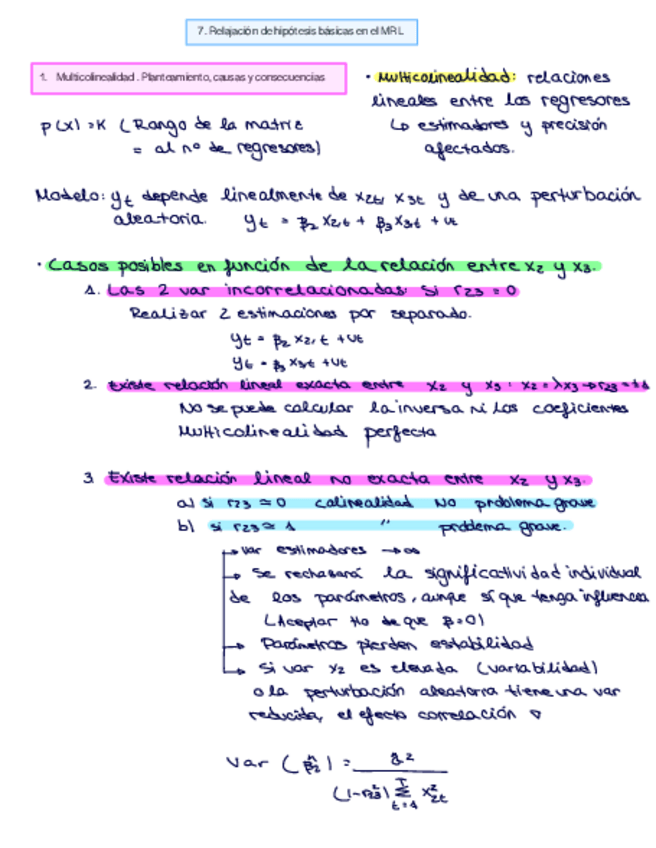 7. Relajación de hipótesis básicas en el MRL
1. Multicolinealidad. Planteamiento, causas y consecuencias
• Multicolinealidad: relaciones
lineales entre los regresores
↳ estimadores y precisión
afectados.
ρ(X) = K (Rango de la matriz
= al nº de regresores)
Modelo: yt depende linealmente de x2t, x3t y de una perturbación
aleatoria. yt = β2 x2t + β3 x3t + ut
• Casos posibles en función de la relación entre x2 y x3.
1. Las 2 var incorrelacionadas: si r23 = 0
Realizar 2 estimaciones por separado.
yt = β2 x2,t + ut
yt = β3 x3t + ut
2. Existe relación lineal exacta entre x2 y x3: x2 = λx3 → r23 = ±1
No se puede calcular la inversa ni los coeficientes
Multicolinealidad perfecta
3 Existe relación lineal no exacta entre x2 y x3.
a) si r23 ≃ 0 colinealidad NO problema grave
b) si r23 ≃ 1 " problema grave.
→ var estimadores → ∞
→ Se rechazará la significatividad individual
de los parámetros, aunque sí que tenga influencia
(Aceptar H0 de que β=0)
→ Parámetros pierden estabilidad
→ Si var x2 es elevada (variabilidad)
o la perturbación aleatoria tiene una var
reducida, el efecto correlación ▽
Var (β̂2) = σ²
(1-r²23) T Σ t=1 x²2t